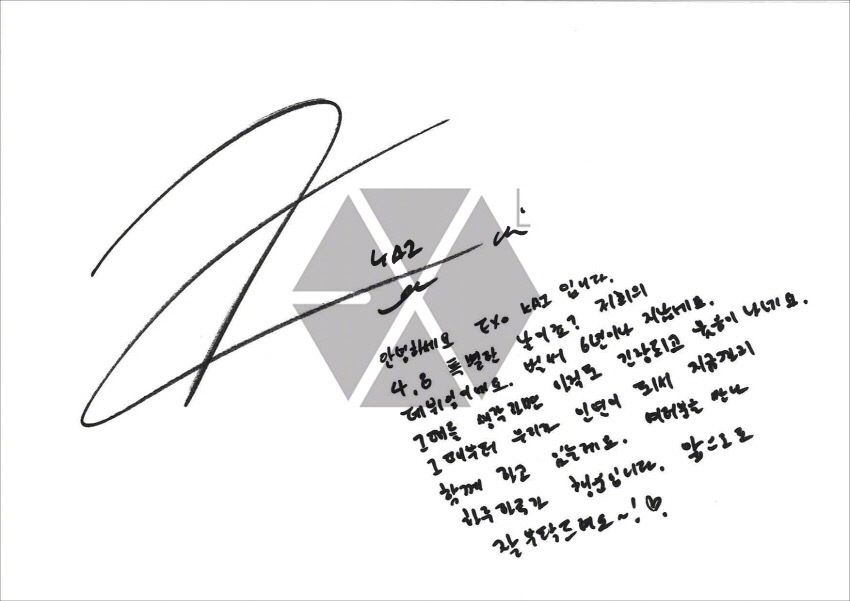 L
KAI
안녕하세요 EXO KAI 입니다.
4.8 특별한 날이죠? 저희의
데뷔일이에요. 벌써 6년이나 지났네요.
그때를 생각하면 아직도 긴장되고 웃음이 나네요.
그때부터 우리가 인연이 되서 지금까지
함께 하고 있는데요. 여러분을 만나
하루하루가 행운입니다. 앞으로도
잘 부탁드려요~! ♡.